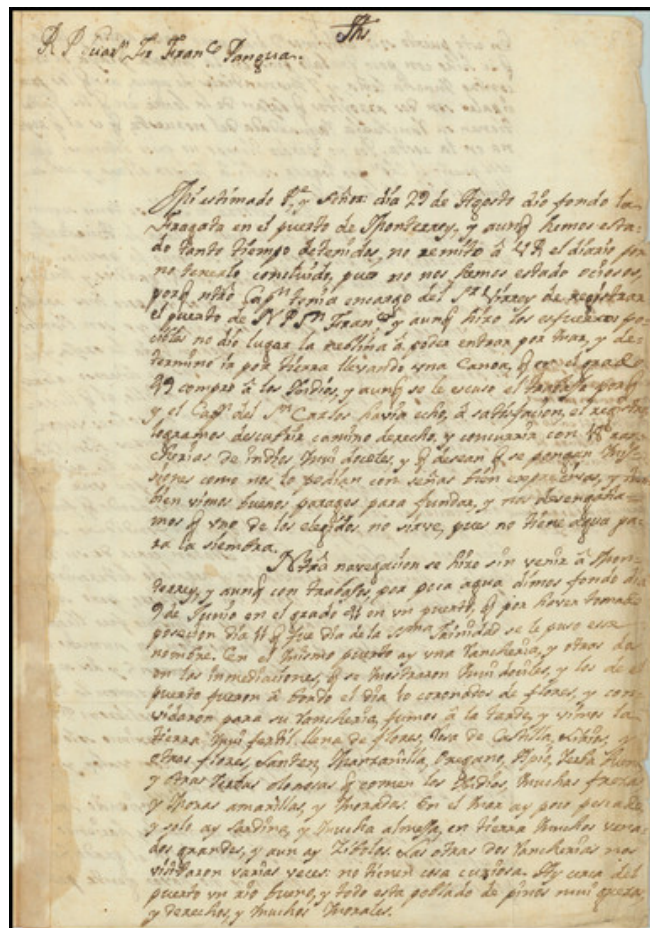 Jhs
R. P. Guarn. Fr. Franco. Pangua.
Mi estimado Pe. y Señor: dia 29 de Agosto dio fondo la
Fragata en el puerto de Monterrey, y aunq hemos esta-
do tanto tiempo detenidos, no remito â V R el diario por
no tenerlo concluido, pues no nos hemos estado ociosos,
porq ntro Capn. tenia encargo del Sr. Virrey de registrar
el puerto de N P Sn Franco. y aunq hizo los esfuerzos po-
sibles no dio lugar la neblina â poder entrar por mar, y de-
termino ir por tierra llevando una Canoa, q en el grado
49 compro â los Indios, y aunq se le escuso el trabajo porq
y el Capn. del Sn Carlos havia echo, â satisfacion, el registro,
logramos descubrir camino derecho, y concurrir con 18 ran-
cherias de indios mui dociles, y q desean q se pongan Mis-
siones como nos lo pedian con señas bien expresivas, y tam-
bien vimos buenos parages para fundar, y nos desengaña-
mos q uno de los elegidos no sirve, pues no tiene agua pa-
ra la siembra.
Ntrâ navegacion se hizo sin venir â Mon-
terrey, y aunq con trabajos, por poca agua dimos fondo dia
9 de Junio en el grado 41 en un puerto, q por haver tomado
posecion dia 11 q fue dia de la Sma. Trinidad se le puso esse
nombre. En el mismo puerto ay una Rancheria, y otras dos
en las inmediaciones, q se mostraron mui dociles, y los de el
puerto fueron â bordo el dia 10 coronados de flores, y con-
vidaron para su Rancheria, fuimos â la tarde, y vimos la
tierra mui fertil, llena de flores, Rosa de Castilla, Lirios, y
otras flores, Manzanilla, Oregano, Apio, Yerba Buena
y otras Yerbas olorosas q comen los Indios, muchas fresas
y Moras amarillas, y moradas. En el mar ay poco pescado,
y solo ay sardina, y mucha almeja, en tierra muchos vena-
dos grandes, y aun ay Zibolos. Las otras dos Rancherias nos
visitaron varias veces: no tienen cosa curiosa. Ay cerca del
puerto un rio bueno, y todo esta poblado de pinos mui gruesos,
y derechos, y muchos morales.